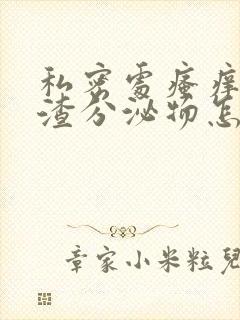 私密處瘙痒
渣分泌物怎
章家小米粒兒